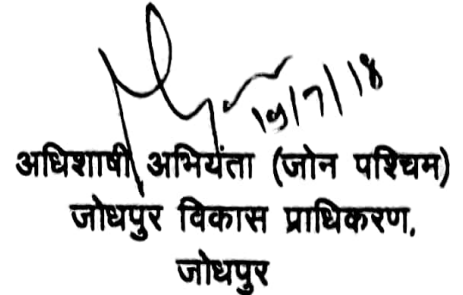 19/7/18
अधिशाषी अभियंता (जोन पश्चिम)
जोधपुर विकास प्राधिकरण,
जोधपुर